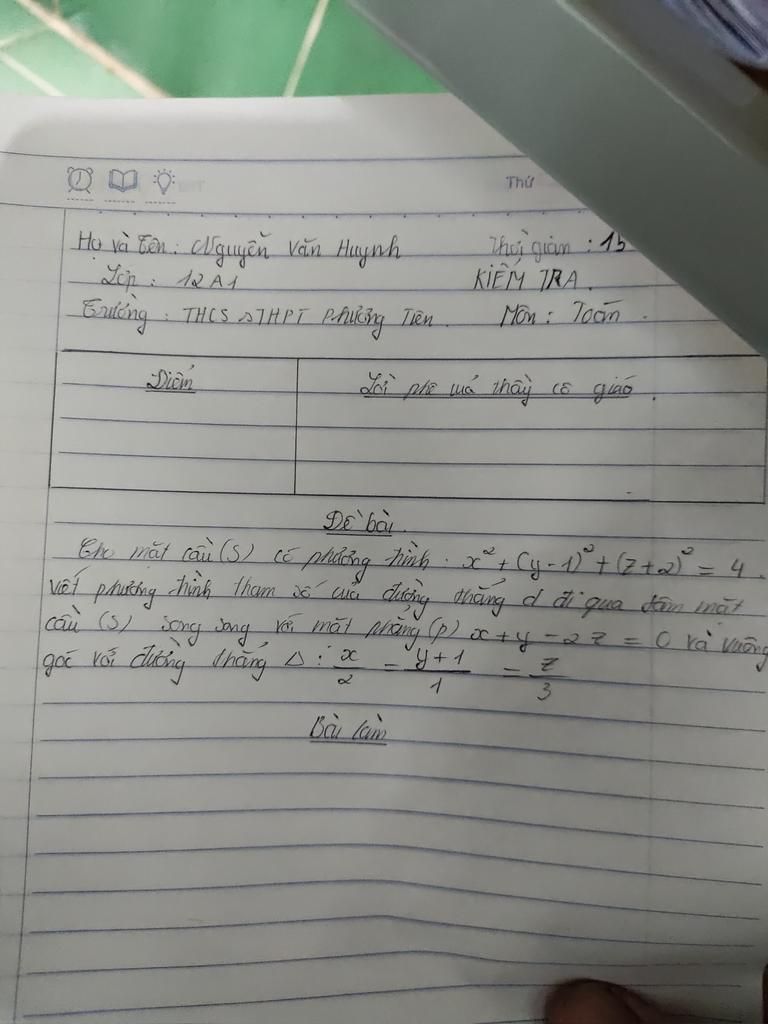 Thứ
Họ và tên : Nguyễn Văn Huynh Thời gian : 15
Lớp : 12A1 KIỂM TRA .
Trường : THCS THPT Phương Tiến . Môn : Toán .
Điểm Lời phê của thầy cô giáo .
Đề bài .
Cho mặt cầu (S) có phương trình . x² + (y - 1)² + (z + 2)² = 4 .
viết phương trình tham số của đường thẳng d đi qua tâm mặt
cầu (S) song song với mặt phẳng (p) x + y - 2z = 0 và vuông
góc với đường thẳng Δ : x/2 = y+1/1 = z/3
Bài làm